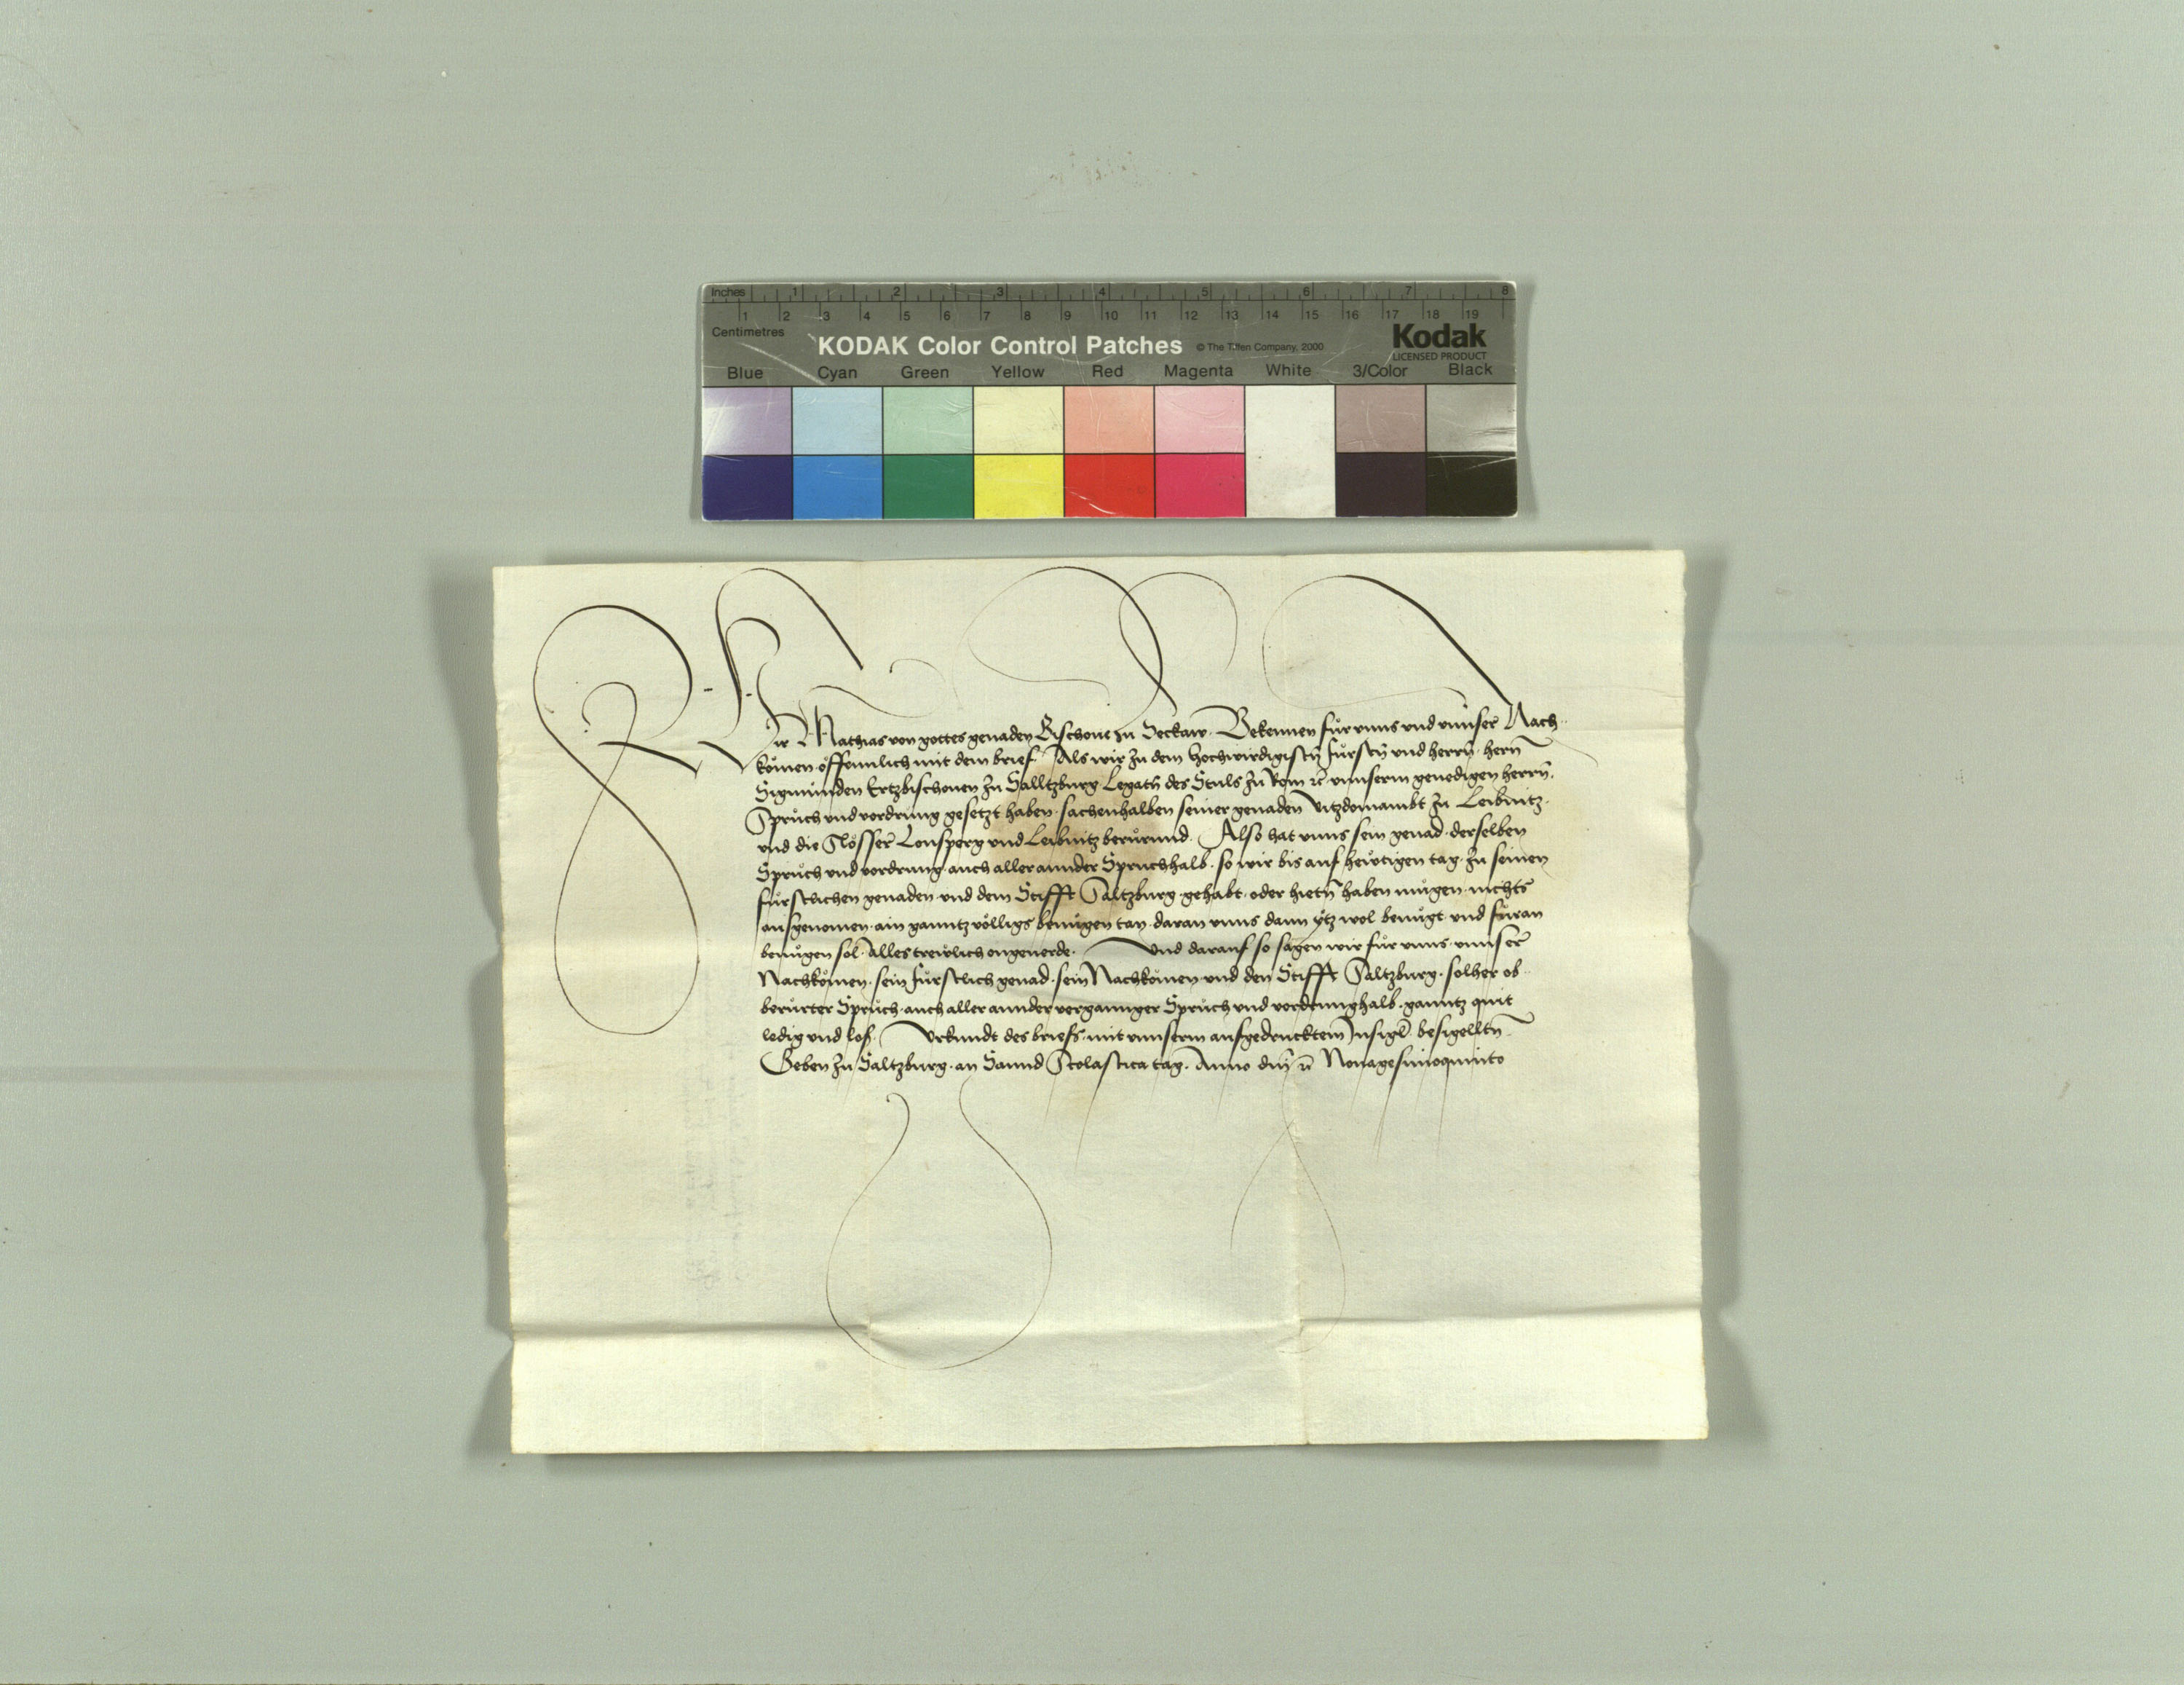 Inches 1 2 3 4 5 6 7 8
1 2 3 4 5 6 7 8 9 10 11 12 13 14 15 16 17 18 19
Centimetres
KODAK Color Control Patches © The Tiffen Company, 2000 Kodak
LICENSED PRODUCT
Blue Cyan Green Yellow Red Magenta White 3/Color Black
Wir Mathias von gottes genaden Bischoue zu Seckaw. Bekennen für vnns vnd vnnser Nach
komen offennlich mit dem brief. Als wir zu dem hochwirdigistn̄ fürstn̄ vnd herrn̄. hern̄
Sigmunden Ertzbischouen zu Salltzburg Legatn̄ des Stuls zu Rom ꝛc̄ vnnserm genedigen herrn̄.
Spruch vnd vordrung gesetzt haben. sachenhalben seiner genaden vitzdomambt zu Leibnitz.
vnd die Slösser Lonsperg vnd Leibnitz berürund. Also hat vnns sein genad. derselben
Spruch vnd vordrung. auch aller annder Spruchhalb. so wir bis auf hewtigen tag. zu seinen
fürstlichen genaden. vnd dem Stifft Saltzburg. gehabt. oder hietn̄ haben mügen. nichts
ausgenomen. ain ganntz völligs benügen tan. daran vnns dann ÿtz wol benügt. vnd füran
benügen sol. alles trewlich ongeuerde. Vnd darauf so sagen wir für vnns. vnnser
Nachkomen. sein fürstlich genad. sein Nachkomen vnd den Stifft Saltzburg. solher ob
berürter Spruch. auch aller annder vergannger Spruch vnd vordrunghalb. ganntz quit
ledig vnd los. Vrkundt des briefs. mit vnnserm aufgedrucktem Insigl̄. besigelltn̄.
Geben zu Saltzburg. an Sannd Scolastica tag. Anno dn̄j ꝛc̄ Nonagesimoquinto